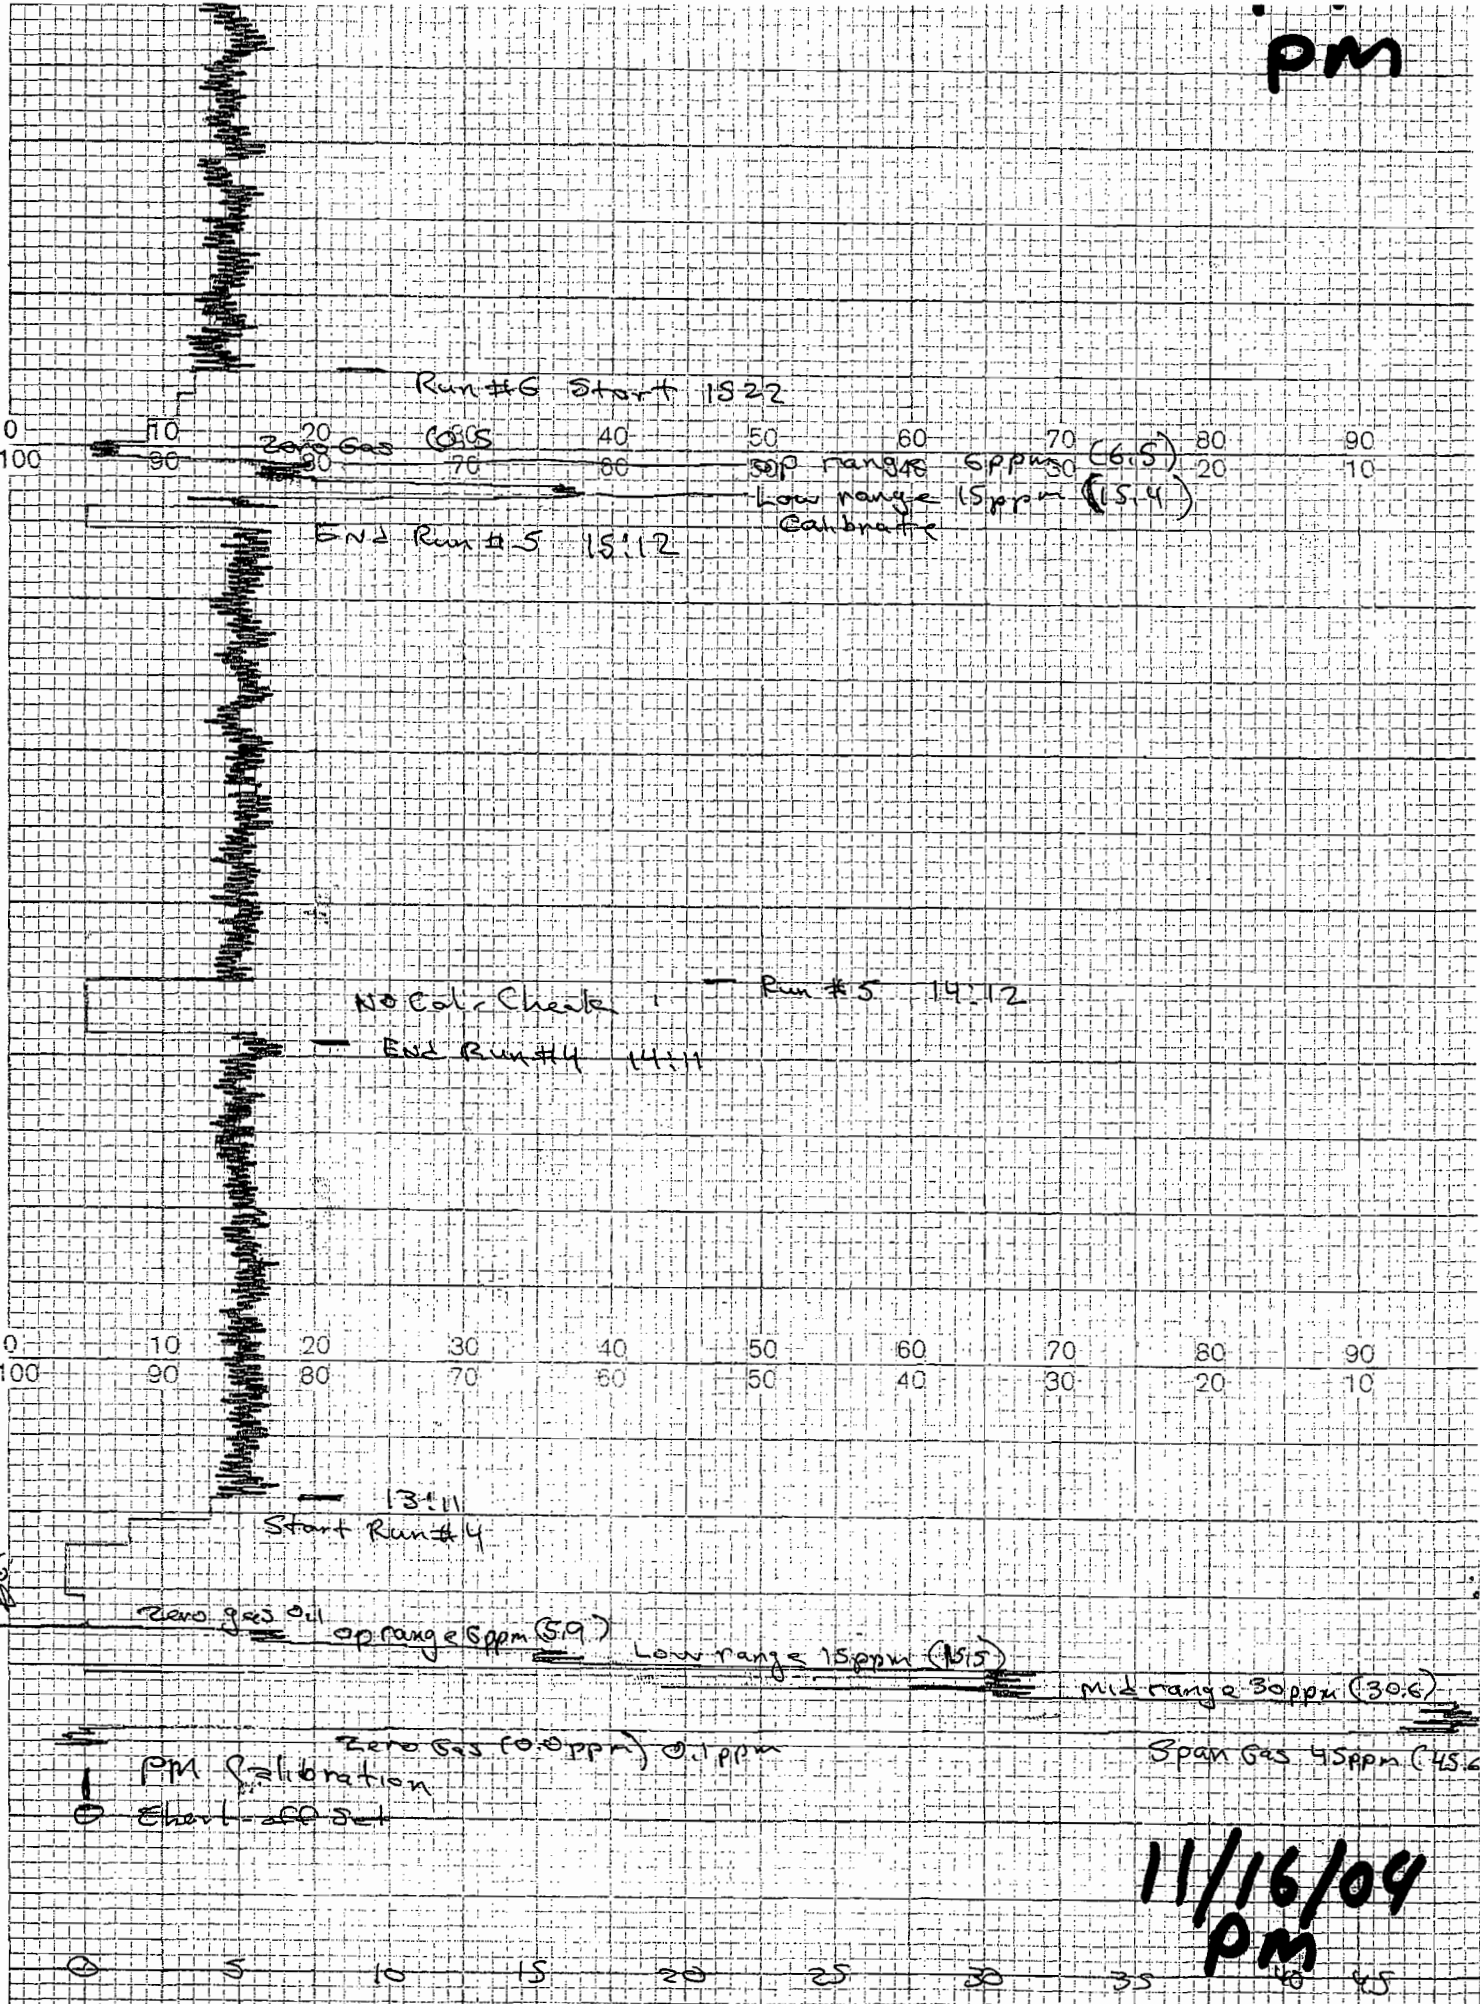 pm
Run #6 Start 1522
0 10 20 30 40 50 60 70 80 90
Zero Gas (0.5
100 90 80 70 60 50 40 30 20 10
op range 6ppm (6.5)
Low range 15ppm (15.4)
Calibrate
End Run #5 15:12
Run #5 14:12
No Cal. Check
End Run #4 14:11
0 10 20 30 40 50 60 70 80 90
100 90 80 70 60 50 40 30 20 10
13:11
Start Run #4
Zero gas 0.1
op range 6ppm (5.9)
Low range 15ppm (15.5)
Mid range 30ppm (30.6)
Zero Gas (0.0ppm) 0.1ppm
Span Gas 45ppm (45.6
PM Calibration
0 Chart off Set
11/16/04
PM
0 5 10 15 20 25 30 35 40 45